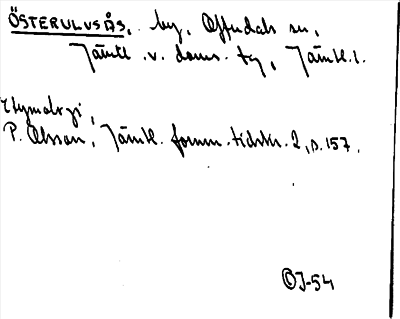 ÖSTERULVSÅS, by, Offerdals sn,
Jämtl. v. doms. tg, Jämtl. l.
Etymologi,
P. Olsson, Jämtl. fornm. tidskr. 2, s. 157.
OJ-54